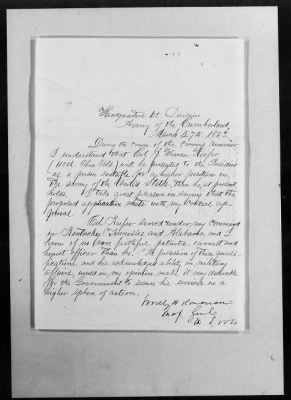 Headquarters 1st Division
Army of the Cumberland,
March 27th 1863
During the course of the coming summer
I understand that Col. J. Warren Keifer
(110th Ohio Vols) will be presented to the President
as a person suitable for a higher position in
the Army of the United States, than he at present
holds. I take great pleasure in saying that the
proposed application meets with my cordial ap-
proval.
Col. Keifer served under my command
in Kentucky Tennessee and Alabama and I
know of no more faithful, patriotic, earnest and
honest officer than he. The possession of these quali-
fications, and his acknowledged ability in military
affairs, would in my opinion make it very desirable
for the Government to secure his services in a
higher sphere of action.
Lovell H. Rousseau
Maj Genl
U. S. Vols